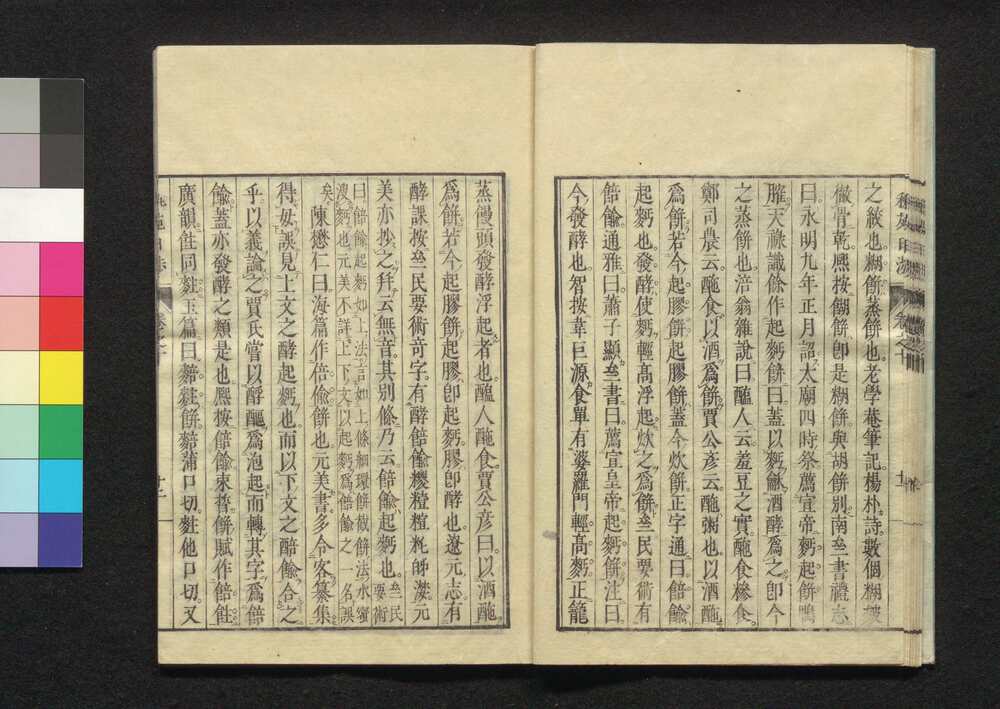 之紋也。糊餅蒸餅也。老學菴筆記。楊朴詩數個糊皴
徹骨乾。熈按餬餅卽是糊餅與胡餅別。南齊書禮志
曰永明九年正月詔太廟四時祭薦宣帝麪起餅鴨
臛。天祿識餘作起麪餅曰蓋以麪龢酒酵爲之卽今
之蒸餅也。涪翁雜說曰醢人云羞豆之實酏食糝食
鄭司農云酏食以酒爲餅。賈公彥云酏粥也。以酒酏
爲餅若今起膠餅。起膠餅蓋今炊餅。正字通曰餢飳
起麪也。發酵使麪輕高浮起。炊之爲餅。齊民要術有
餢飳。通雅曰蕭子顯齊書曰薦宣皇帝起麪餅。注曰
今發酵也。智按韋巨源食單有婆羅門輕高麪正籠
蒸饅頭發酵浮起者也。醢人酏食賈公彥曰以酒酏
爲餅。若今起膠餅。起膠卽起麪。膠卽酵也。遼元志有
酵課。按齊民要術奇字。有酵餢飳糉𥻨粔籹䬾𩞯元
美亦抄之幷云無音。其別條乃云餢飳起麪也。齊民要術
曰餢飳起麪如上法言如上條細環餅截餅法水溲
溲麪也元美不詳上下文以起麪爲餢飳之一名誤
矣陳懋仁曰海篇作倍偸餅也。元美書多令客纂集
得毋誤見上文之酵起麪也。而以下文之餢飳合之
乎。以義論之賈氏當以酻䤅爲泡起。而轉其字爲餢
飳。蓋亦發酵之類是也。熈按餢飳束晳餅賦作餢䬴
廣韻䬴同䴺。玉篇曰䴺䴺餅。䴺蒲口切。䴺他口切。又